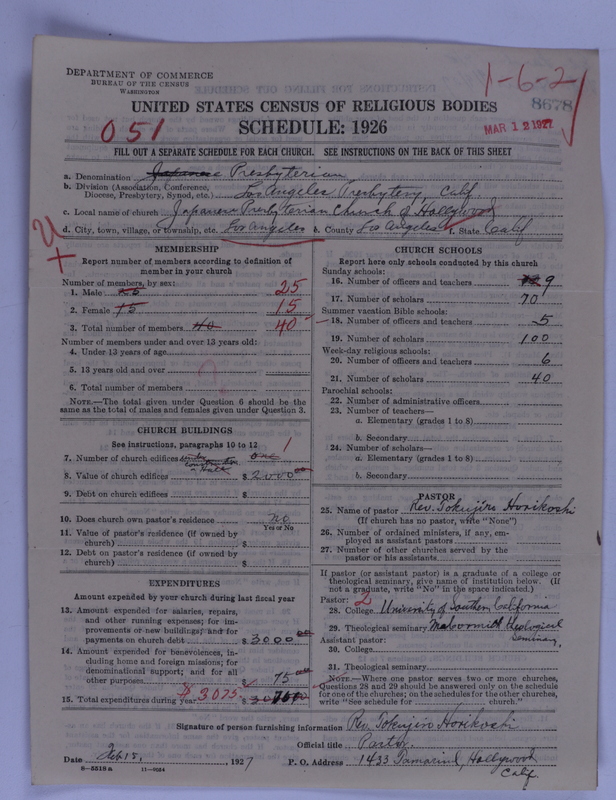 DEPARTMENT OF COMMERCE
BUREAU OF THE CENSUS
WASHINGTON
1-6-2
8678
UNITED STATES CENSUS OF RELIGIOUS BODIES
051
SCHEDULE: 1926
MAR 12 1927
FILL OUT A SEPARATE SCHEDULE FOR EACH CHURCH. SEE INSTRUCTIONS ON THE BACK OF THIS SHEET
a. Denomination Japanese Presbyterian
b. Division (Association, Conference, Diocese, Presbytery, Synod, etc.) Los Angeles Presbytery Calif.
c. Local name of church Japanese Presbyterian Church of Hollywood
d. City, town, village, or township, etc. Los Angeles e. County Los Angeles f. State Calif
MEMBERSHIP
Report number of members according to definition of member in your church
Number of members, by sex:
1. Male 25
2. Female 15 15
3. Total number of members 40 40
Number of members under and over 13 years old:
4. Under 13 years of age
5. 13 years old and over
6. Total number of members
NOTE.—The total given under Question 6 should be the same as the total of males and females given under Question 3.
CHURCH BUILDINGS
See instructions, paragraphs 10 to 12
7. Number of church edifices under construction one 1
8. Value of church edifices $ 2000.00
9. Debt on church edifices $
10. Does church own pastor's residence No
Yes or No
11. Value of pastor's residence (if owned by church) $
12. Debt on pastor's residence (if owned by church) $
EXPENDITURES
Amount expended by your church during last fiscal year
13. Amount expended for salaries, repairs, and other running expenses; for improvements or new buildings; and for payments on church debt $ 3000.00
14. Amount expended for benevolences, including home and foreign missions; for denominational support; and for all other purposes $ 75.00
$ 3075
15. Total expenditures during year $
CHURCH SCHOOLS
Report here only schools conducted by this church
Sunday schools:
16. Number of officers and teachers 9
17. Number of scholars 70
Summer vacation Bible schools:
18. Number of officers and teachers 5
19. Number of scholars 100
Week-day religious schools:
20. Number of officers and teachers 6
21. Number of scholars 40
Parochial schools:
22. Number of administrative officers
23. Number of teachers—
a. Elementary (grades 1 to 8)
b. Secondary
24. Number of scholars—
a. Elementary (grades 1 to 8)
b. Secondary
PASTOR
25. Name of pastor Rev. Tokujiro Horikoshi
(If church has no pastor, write "None")
26. Number of ordained ministers, if any, employed as assistant pastors
27. Number of other churches served by the pastor or his assistants
If pastor (or assistant pastor) is a graduate of a college or theological seminary, give name of institution below. (If not a graduate, write "No" in the space indicated.)
Pastor: 2
28. College University of Southern California
29. Theological seminary Theological Seminary
Assistant pastor:
30. College
31. Theological seminary
NOTE.—Where one pastor serves two or more churches, Question 28 and 29 should be answered only on the schedule for one of the churches; on the schedules for the other churches, write "See schedule for church."
Signature of person furnishing information Rev. Tokujiro Horikoshi
Official title Pastor
Date Feb 15, 1927 P. O. Address 1433 Tamarind, Hollywood Calif.
8-5518 a 11-9254